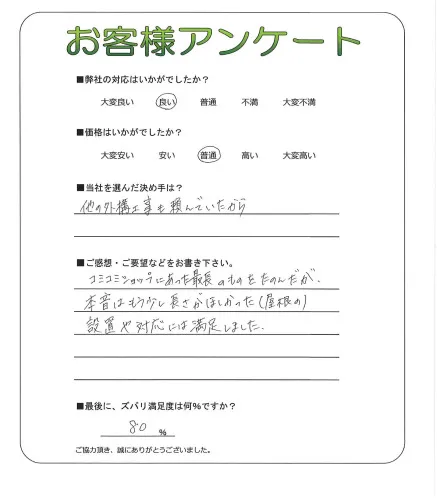 お客様アンケート
■弊社の対応はいかがでしたか？
大変良い 良い 普通 不満 大変不満
■価格はいかがでしたか？
大変安い 安い 普通 高い 大変高い
■当社を選んだ決め手は？
他の外構工事も頼んでいたから
■ご感想・ご要望などをお書き下さい。
コミコミショップにあった最長のものをたのんだが、
本音はもう少し長さがほしかった(屋根の)
設置や対応には満足しました.
■最後に、ズバリ満足度は何%ですか？
80 %
ご協力頂き、誠にありがとうございました。